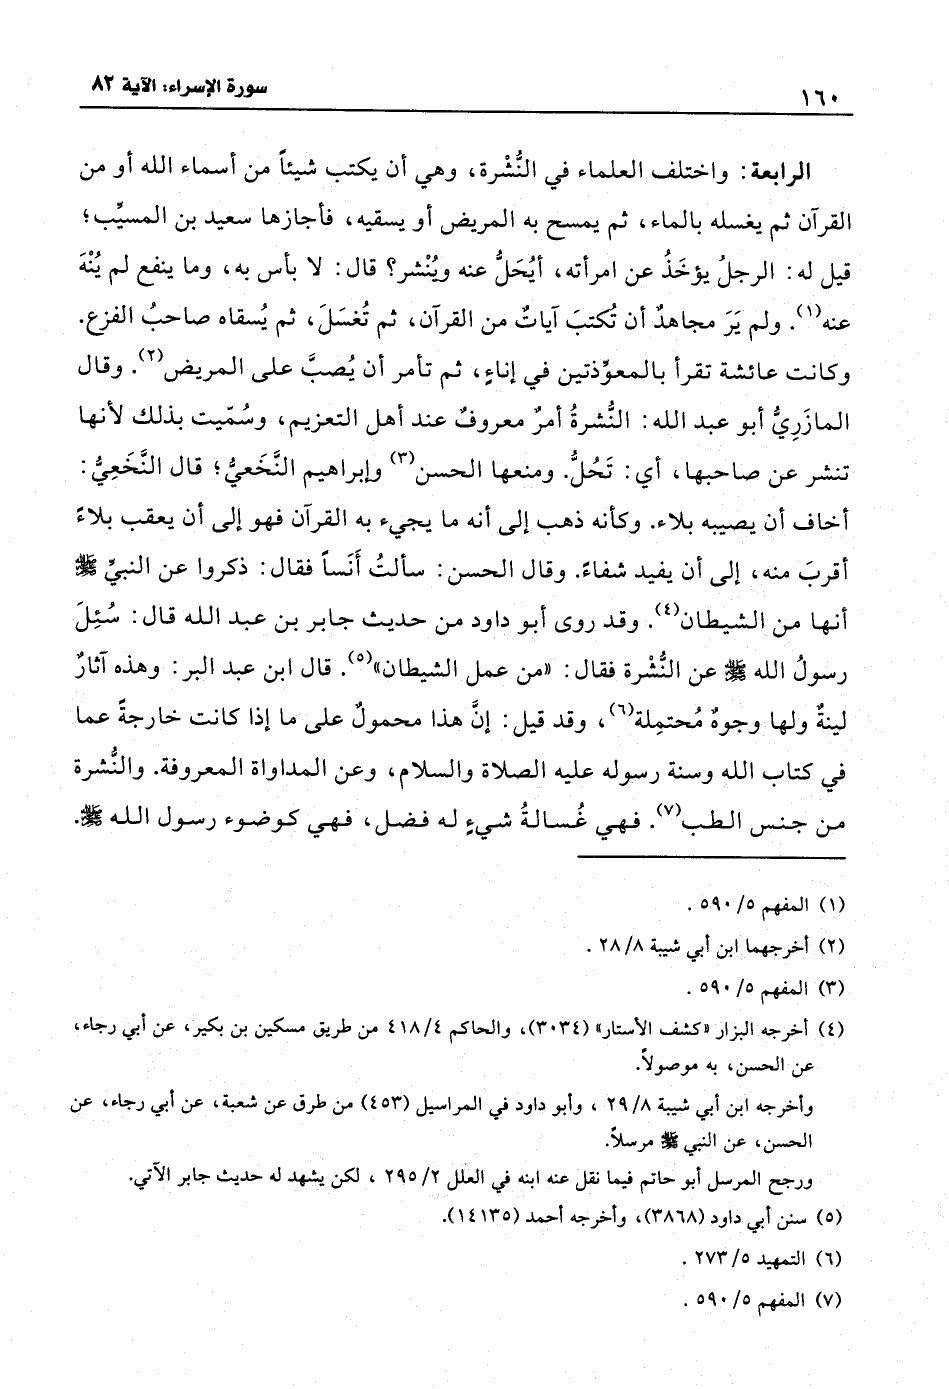 ١٦٠
سورة الإسراء: الآية ٨٢
الرابعة: واختلف العلماء في النُّشْرة، وهي أن يكتب شيئاً من أسماء الله أو من
القرآن ثم يغسله بالماء، ثم يمسح به المريض أو يسقيه، فأجازها سعيد بن المسيِّب؛
قيل له: الرجلُ يؤخَذُ عن امرأته، أيُحَلُّ عنه ويُنْشر؟ قال: لا بأس به، وما ينفع لم يُنْهَ
عنه(١). ولم يَرَ مجاهدٌ أن تُكتبَ آياتٌ من القرآن، ثم تُغسَلَ، ثم يُسقاه صاحبُ الفزع.
وكانت عائشة تقرأ بالمعوِّذتين في إناءٍ، ثم تأمر أن يُصبَّ على المريض(٢). وقال
المازَرِيُّ أبو عبد الله: النُّشرةُ أمرٌ معروفٌ عند أهل التعزيم، وسُمّيت بذلك لأنها
تنشر عن صاحبها، أي: تَحُلُّ. ومنعها الحسن(٣) وإبراهيم النَّخَعيُّ؛ قال النَّخَعِيُّ:
أخاف أن يصيبه بلاء. وكأنه ذهب إلى أنه ما يجيء به القرآن فهو إلى أن يعقب بلاءً
أقربَ منه، إلى أن يفيد شفاءً. وقال الحسن: سألتُ أَنَساً فقال: ذكروا عن النبيِّ ﷺ
أنها من الشيطان(٤). وقد روى أبو داود من حديث جابر بن عبد الله قال: سُئِلَ
رسولُ الله ﷺ عن النُّشْرة فقال: «من عمل الشيطان»(٥). قال ابن عبد البر: وهذه آثارٌ
لينةٌ ولها وجوهٌ مُحتمِلة(٦)، وقد قيل: إنَّ هذا محمولٌ على ما إذا كانت خارجةً عما
في كتاب الله وسنة رسوله عليه الصلاة والسلام، وعن المداواة المعروفة. والنُّشرة
من جنس الطب(٧). فهي غُسالةُ شيءٍ له فضل، فهي كوضوء رسول الله ﷺ.
(١) المفهم ٥/ ٥٩٠ .
(٢) أخرجهما ابن أبي شيبة ٨/ ٢٨ .
(٣) المفهم ٥/ ٥٩٠ .
(٤) أخرجه البزار «كشف الأستار» (٣٠٣٤)، والحاكم ٤/ ٤١٨ من طريق مسكين بن بكير، عن أبي رجاء،
عن الحسن، به موصولاً.
وأخرجه ابن أبي شيبة ٨/ ٢٩ ، وأبو داود في المراسيل (٤٥٣) من طرق عن شعبة، عن أبي رجاء، عن
الحسن، عن النبي ﷺ مرسلاً.
ورجح المرسل أبو حاتم فيما نقل عنه ابنه في العلل ٢/ ٢٩٥ ، لكن يشهد له حديث جابر الآتي.
(٥) سنن أبي داود (٣٨٦٨)، وأخرجه أحمد (١٤١٣٥).
(٦) التمهيد ٥/ ٢٧٣ .
(٧) المفهم ٥/ ٥٩٠ .